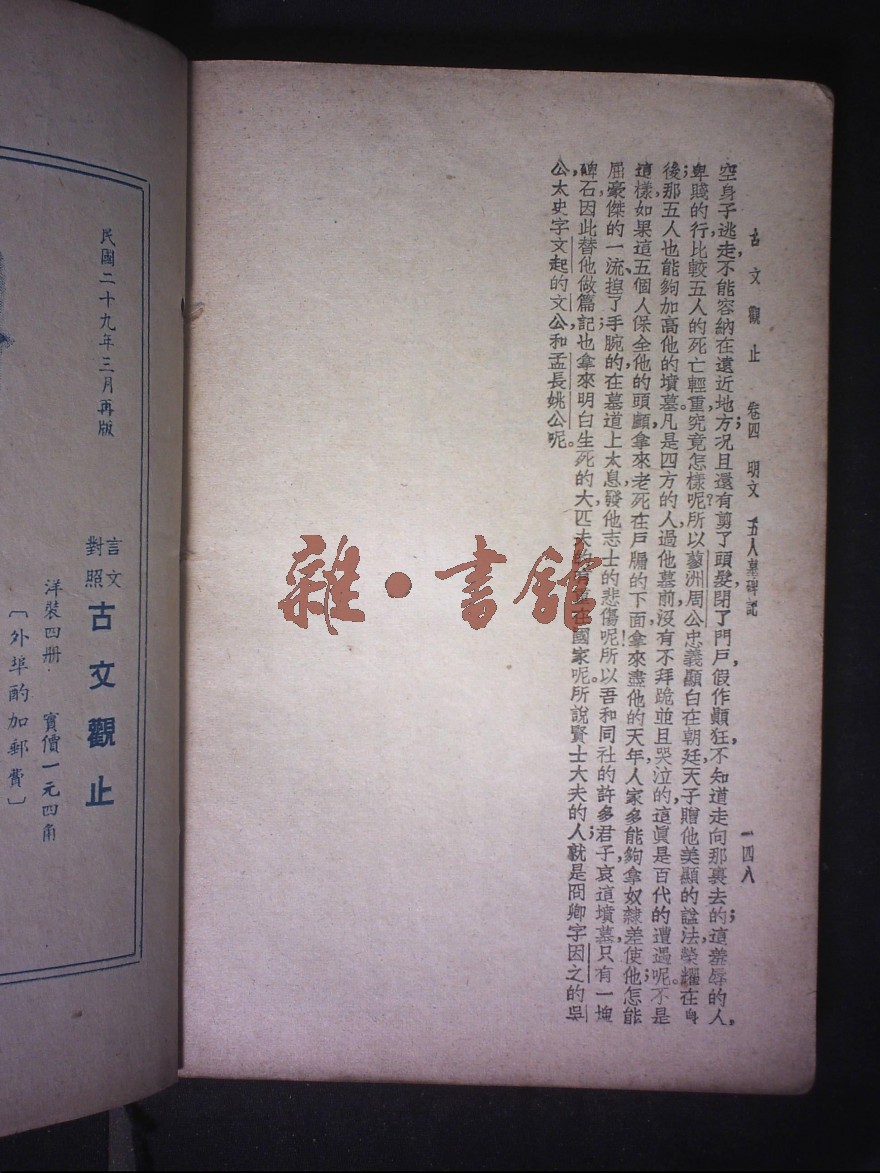 古文觀止　卷四　明文　五人墓碑記　一四八
空身子逃走，不能容納在遠近地方；況且還有剪了頭髮，閉了門戶，假作顚狂，不知道走向那裏去的；這羞辱的人，
卑賤的行，比較五人的死亡，輕重究竟怎樣呢？所以蓼洲周公，忠義顯白在朝廷，天子贈他美顯的諡法，榮耀在身
後；那五人也能夠加高他的墳墓。凡是四方的人，過他墓前，沒有不拜跪並且哭泣的，這眞是百代的遭遇呢。不是
這樣，如果這五個人保全他的頭顱，拿來老死在戶牖的下面，拿來盡他的天年，人家多能夠拿奴隸差使他；怎能
屈豪傑的一流，揑了手腕的在墓道上太息，發他志士的悲傷呢！所以吾和同社的許多君子，哀這墳墓，只有一塊
碑石，因此替他做篇記；也拿來明白生死的大，匹夫在國家呢。所說賢士大夫的人；就是冏卿字因之的吳
公，太史字文起的文公，和孟長姚公呢。
民國二十九年三月再版
言文對照
古文觀止
洋裝四册　實價一元四角
〔外埠酌加郵費〕
雜·書館